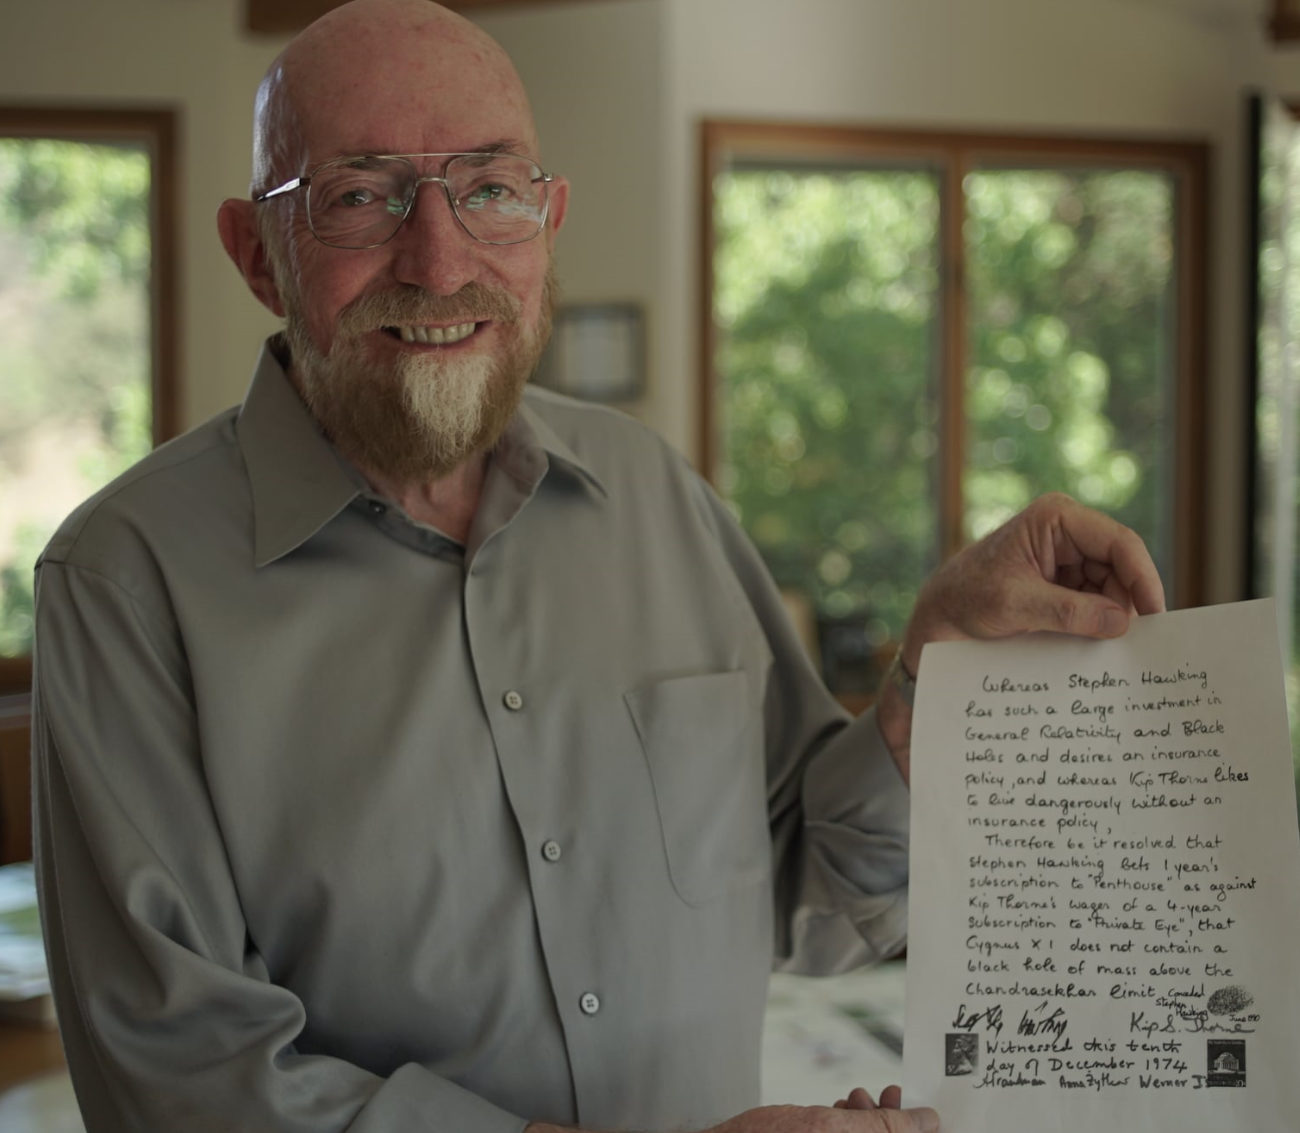 Whereas Stephen Hawking
has such a large investment in
General Relativity and Black
Holes and desires an insurance
policy, and whereas Kip Thorne likes
to live dangerously without an
insurance policy,
Therefore be it resolved that
Stephen Hawking bets 1 year's
subscription to "Penthouse" as against
Kip Thorne's wager of a 4-year
subscription to "Private Eye", that
Cygnus X 1 does not contain a
black hole of mass above the
Chandrasekhar limit
Conceded
Stephen
Hawking
June 1990
Kip S. Thorne
Witnessed this tenth
day of December 1974
Anna Żytkow Werner